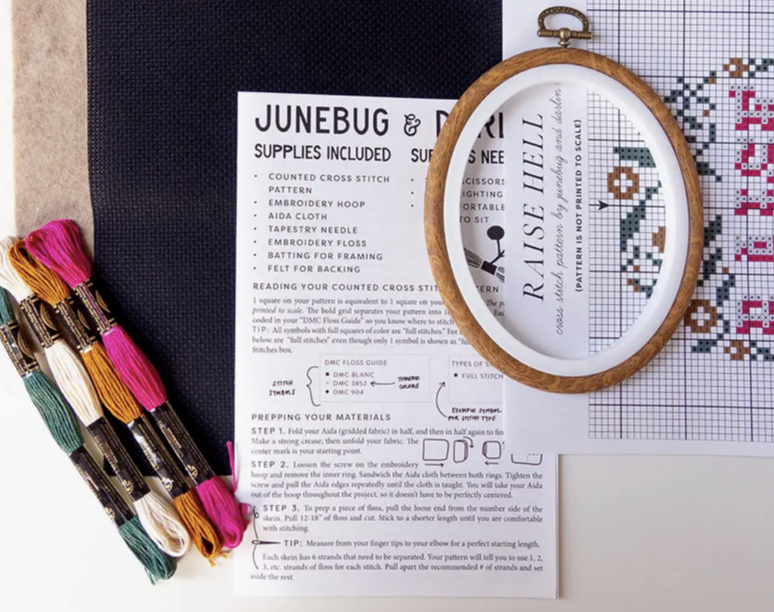 JUNEBUG &
SUPPLIES INCLUDED
• COUNTED CROSS STITCH
PATTERN
• EMBROIDERY HOOP
• AIDA CLOTH
• TAPESTRY NEEDLE
• EMBROIDERY FLOSS
• BATTING FOR FRAMING
• FELT FOR BACKING
TO SIT
READING YOUR COUNTED CROSS
1 square on your pattern is equivalent to 1 square on your
printed to scale. The bold grid separates your pattern into
coded in your "DMC Floss Guide" so you know where to stitch
TIP: All symbols with full squares of color are "full stitches." For
below are "full stitches" even though only 1 symbol is shown as
Stitches box.
DMC FLOSS GUIDE
• DMC BLANC
DMC 3852
• DMC 904
STITCH
SYMBOLS
THREAD
COLORS
TYPES OF
• FULL STITCH
EXAMPLE SYMBOL
FOR STITCH TYPE
PREPPING YOUR MATERIALS
STEP 1. Fold your Aida (gridded fabric) in half, and then in half again to
Make a strong crease, then unfold your fabric. The
center mark is your starting point.
STEP 2. Loosen the screw on the embroidery
hoop and remove the inner ring. Sandwich the Aida cloth between both rings. Tighten the
screw and pull the Aida edges repeatedly until the cloth is taught. You will take your Aida
out of the hoop throughout the project, so it doesn't have to be perfectly centered.
STEP 3. To prep a piece of floss, pull the loose end from the number side of the
skein. Pull 12-18" of floss and cut. Stick to a shorter length until you are comfortable
with stitching.
TIP: Measure from your finger tips to your elbow for a perfect starting length.
Each skein has 6 strands that need to be separated. Your pattern will tell you to use 1, 2,
3, etc. strands of floss for each stitch. Pull apart the recommended # of strands and set
aside the rest.
RAISE HELL
cross stitch pattern by junebug and darlin
(PATTERN IS NOT PRINTED TO SCALE)